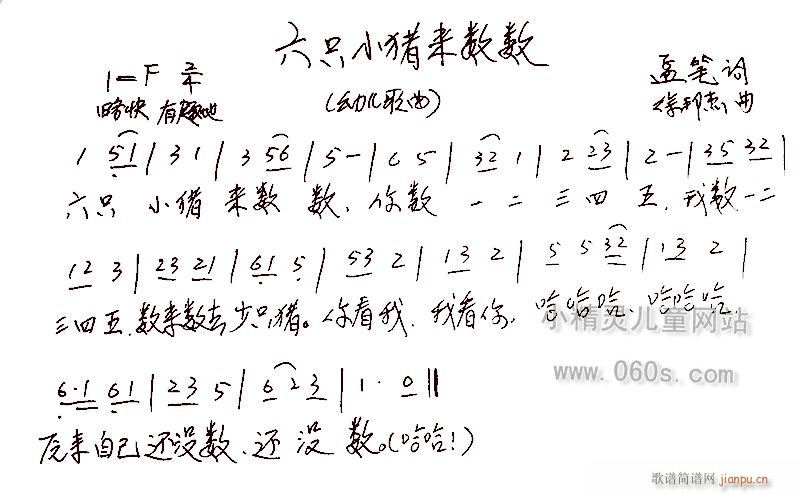 六只小猪来数数
1=F 2/4
略快 有趣地
(幼儿歌曲)
孟笔 词
徐邦杰 曲
1 51 | 3 1 | 3 56 | 5 - | 6 5 | 32 1 | 2 23 | 2 - | 35 32 |
六只 小猪 来数 数、你数 一 二 三 四 五，我数一二
12 3 | 23 21 | 61 5 | 53 2 | 13 2 | 5 5 32 | 13 2 |
三四五，数来数去少只猪。你看我，我看你，哈哈哈，哈哈哈，
6·1 61 | 23 5 | 6 23 | 1· 0 ||
原来自己还没数、还没数。(哈哈！)
小精灵儿童网站
www.060s.com
歌谱简谱网 jianpu.cn